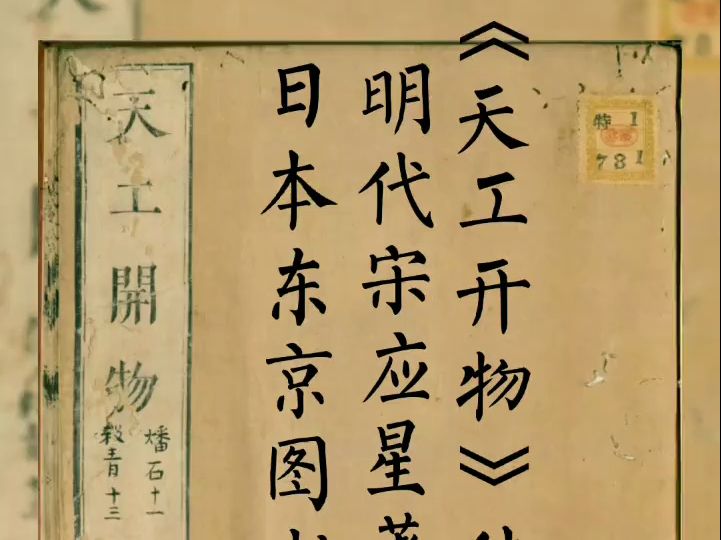 《天工开物》
明代宋应星著
日本东京图
特 1
781
天工開物
燔石十一
殺青十三